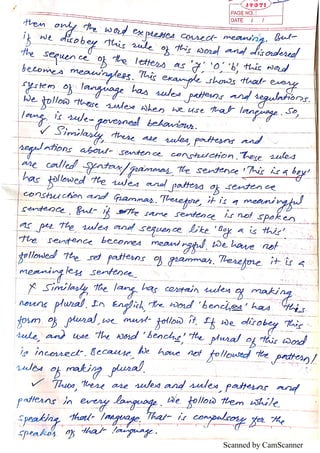 PAGE NO.:
DATE: / /
then only the word expresses correct meaning. But
if we disobey this rule of this word and disordered
the sequence of the letters as 'y', 'o', 'b', this word
becomes meaningless. This example shows that every
system of language has rules patterns and regulations.
We follow these rules when we use that language. So,
lang is rule-governed behaviour.
✓ Similarly, there are rules, patterns and
regulations about sentence construction. These rules
are called Syntax/grammar. The sentence 'This is a boy'
has followed the rules and patterns of sentence
construction and Grammar. Therefore, it is a meaningful
sentence. But if the same sentence is not spoken
as per the rules and sequence like 'Boy a is this'
the sentence becomes meaningful. We have not
followed the set patterns of grammar. Therefore it is a
meaningless sentence.
x Similarly the lang has certain rules of making
nouns plural. In English, the word 'benches' has this
form of plural, we must follow it. If we disobey this
rule, and use the word 'benchs' the plural of this word
is incorrect. Because, We have not followed the pattern/
rules of making plural.
✓ Thus, there are rules and rules, patterns and
patterns in every language. We follow them while
speaking that language. That is compulsory for the
speaker of that language.
Scanned by CamScanner